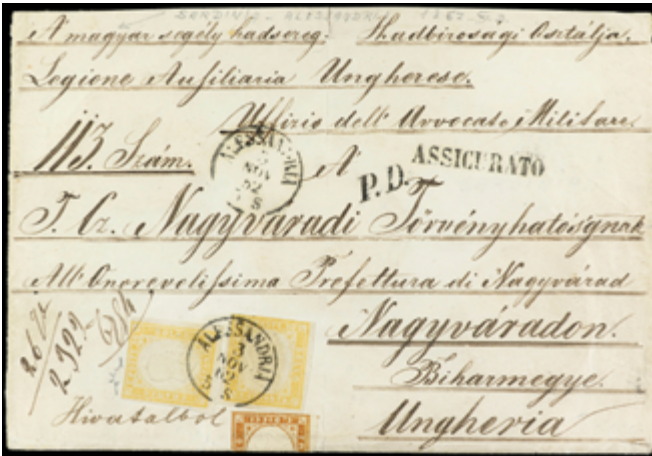 A magyar segély hadsereg. Hadbirosagi Osztálja.
Legione Ausiliaria Ungherese.
Uffizio dell' Avvocato Militare.
113. Szám.
A
ALESSANDRIA
3
NOV
62
5 S
P.D.
ASSICURATO
T. Cz. Nagyváradi Törvényhatóságnak
All' Onorevolissima Prefettura di Nagyvárad
Nagyváradon.
Biharmegye.
Ungheria
ALESSANDRIA
3
NOV
62
5 S
2922
Hivatalból